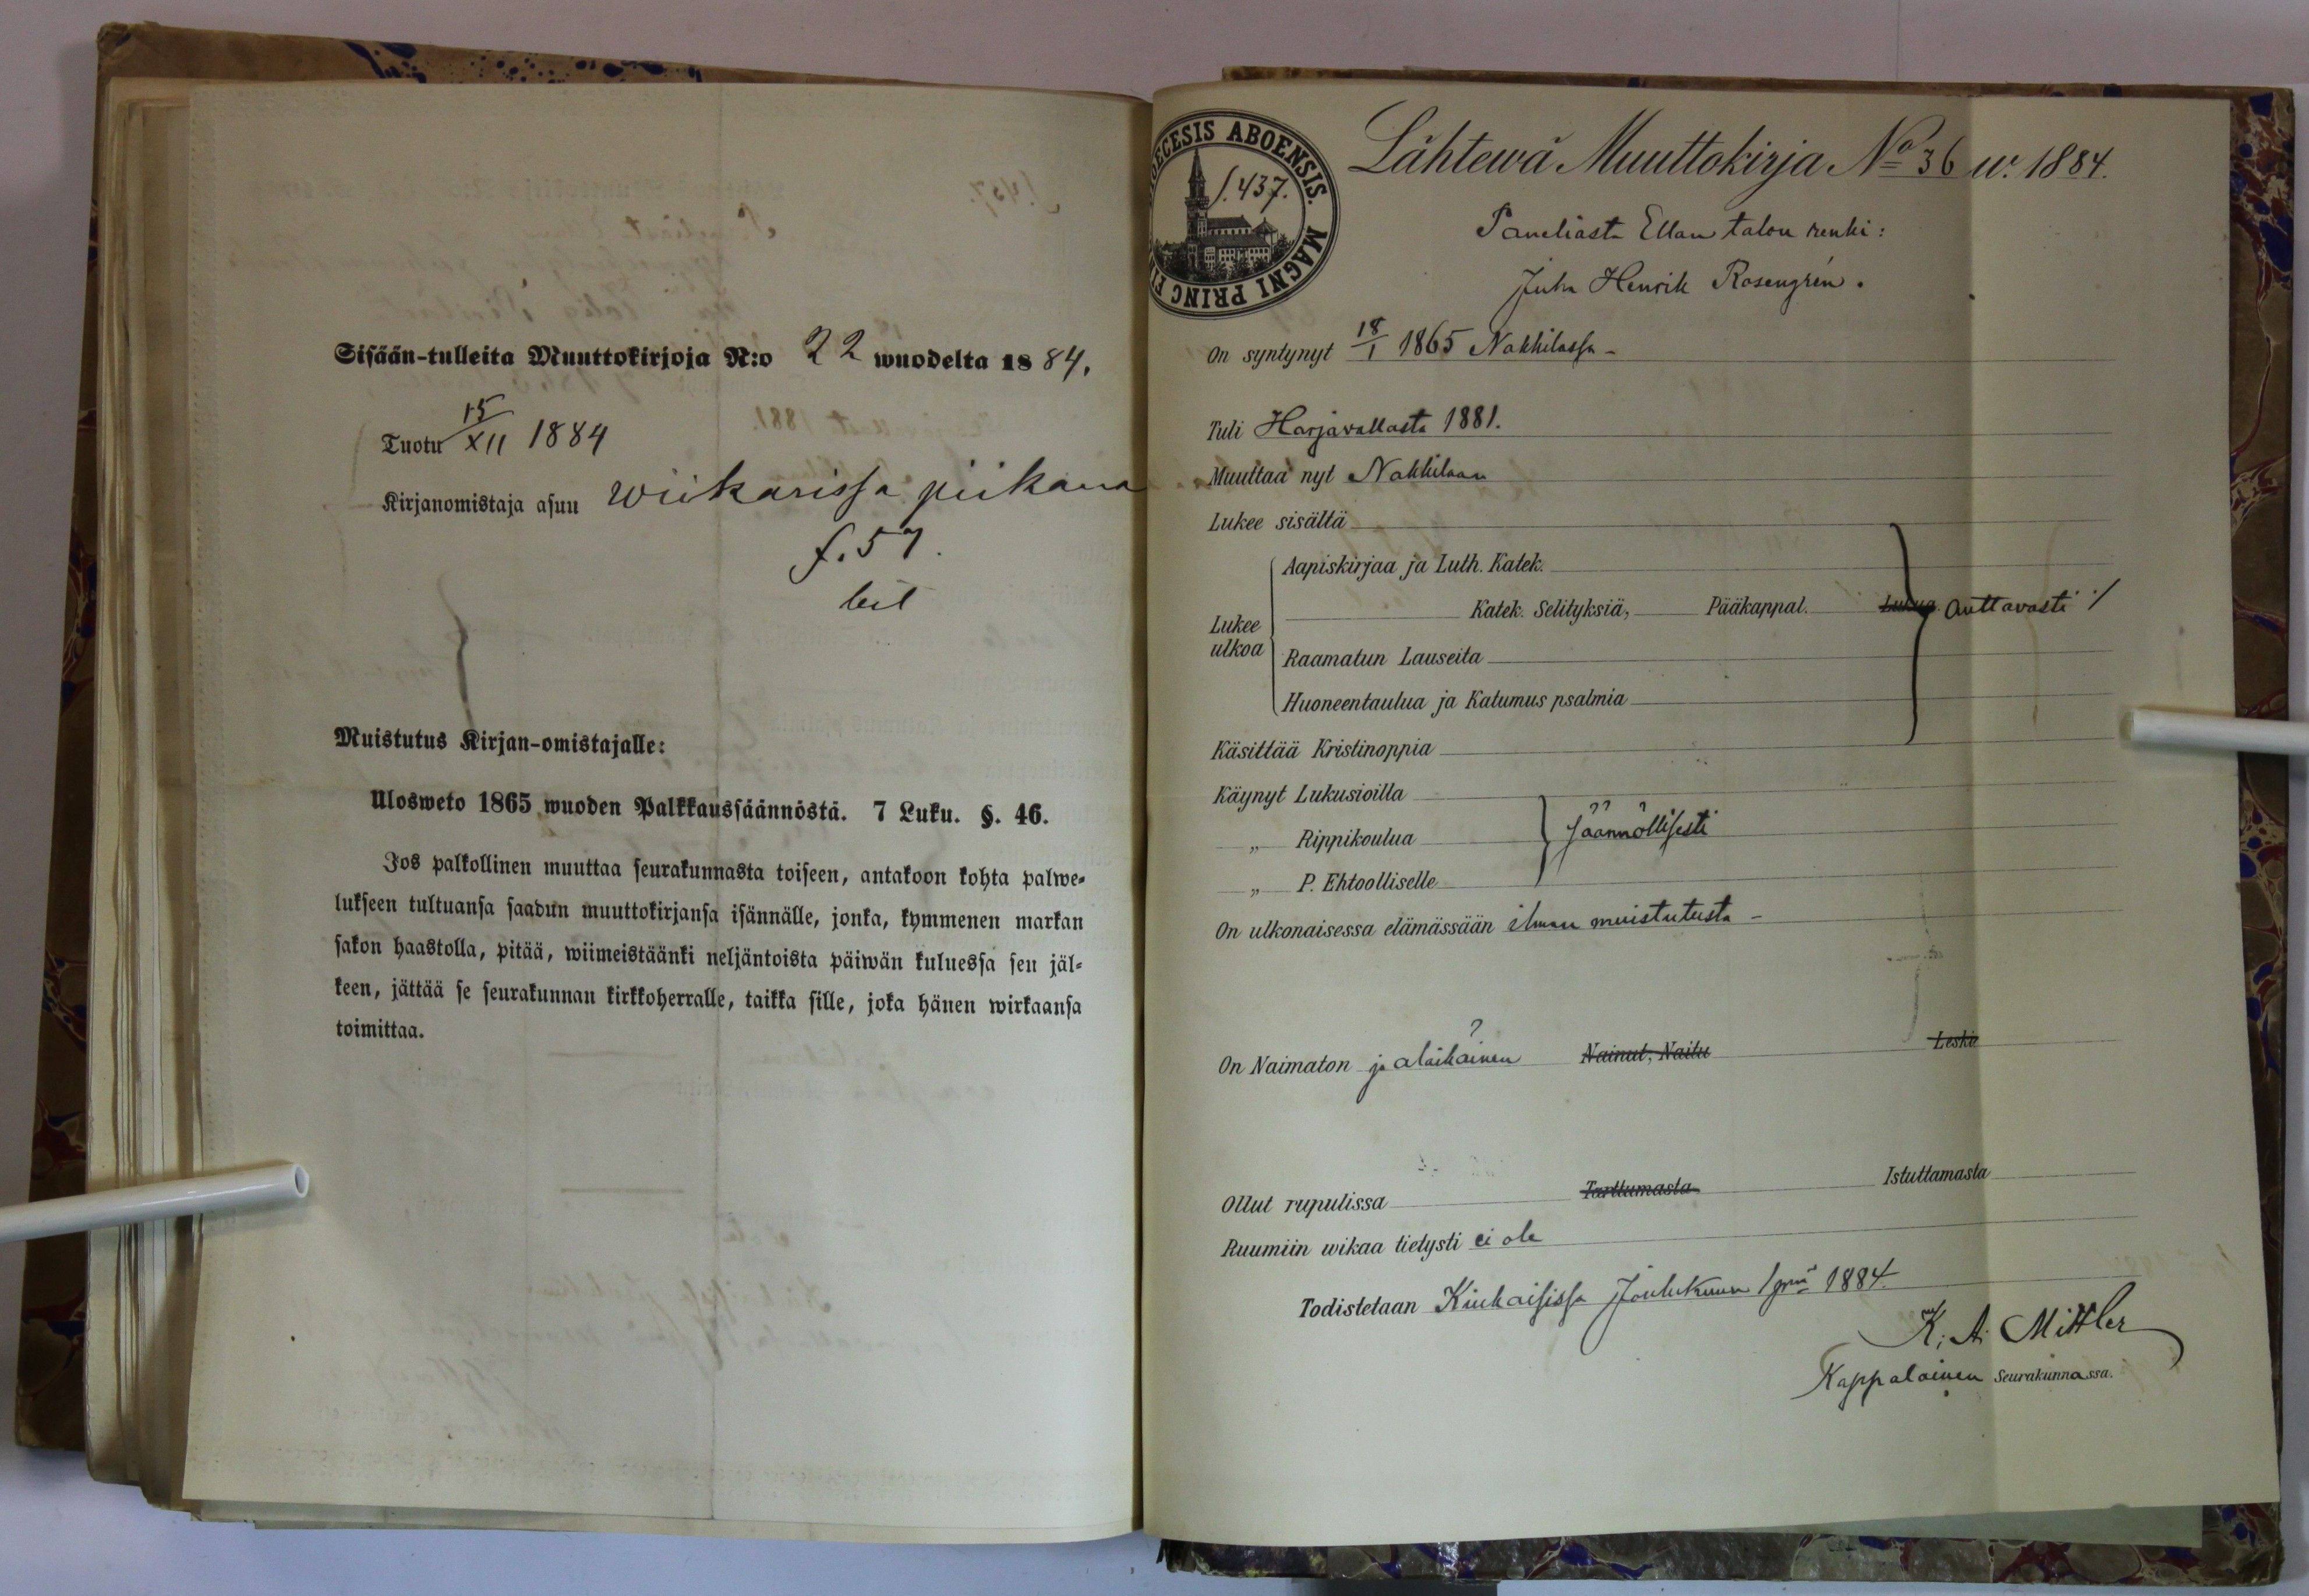 Sisään-tulleita Muuttokirjoja N:o 22 wuodelta 1884.
Tuotu 15/XII 1884
Kirjanomistaja asuu Wiikarissa piikana
f. 57.
Muistutus Kirjan-omistajalle:
Ulosweto 1865 wuoden Palkkaussäännöstä. 7 Luku. §. 46.
Jos palkollinen muuttaa seurakunnasta toiseen, antakoon kohta palwe-
lukseen tultuansa saadun muuttokirjansa isännälle, jonka, kymmenen markan
sakon haastolla, pitää, wiimeistäänki neljäntoista päiwän kuluessa sen jäl-
keen, jättää se seurakunnan kirkkoherralle, taikka sille, joka hänen wirkaansa
toimittaa.
ECESIS ABOENSIS. MAGNI PRINC FI
f. 437.
Lähtewä Muuttokirja No 36 w. 1884.
Paneliasta Ellan talon renki:
Juha Henrik Rosengrén.
On syntynyt 18/1 1865 Nakkilassa -
Tuli Harjavallasta 1881.
Muuttaa nyt Nakkilaan
Lukee sisältä
Lukee ulkoa
Aapiskirjaa ja Luth. Katek.
Katek. Selityksiä, Pääkappal. Lukua. Auttavasti /
Raamatun Lauseita
Huoneentaulua ja Katumus psalmia
Käsittää Kristinoppia
Käynyt Lukusioilla
„ Rippikoulua säännöllisesti
„ P. Ehtoolliselle
On ulkonaisessa elämässään ilman muistutusta -
On Naimaton ja alaikäinen Nainut, Naitu Leski
Ollut rupulissa Tarttumasta Istuttamasta
Ruumiin wikaa tietysti ei ole
Todistetaan Kiukaisissa Joulukuun 1 pnä 1884.
K. A. Mittler
Kappalainen Seurakunnassa.